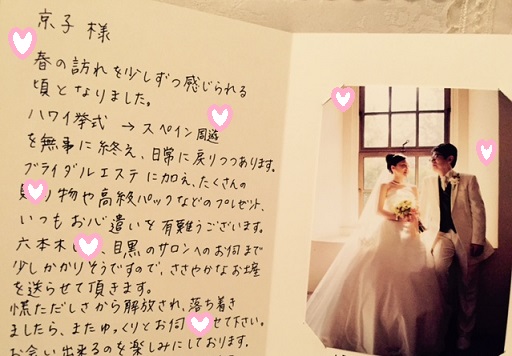 京子 様
春の訪れを少しずつ感じられる
頃となりました。
ハワイ挙式 → スペイン周遊
を無事に終え、日常に戻りつつあります。
ブライダルエステに加え、たくさんの
り物や高級パックなどのプレゼント、
いつもお心遣いを有難うございます。
六本木 、目黒のサロンへのお伺まで
少しかかりそうですので、ささやかなお土産
を送らせて頂きます。
慌ただしさから解放され、落ち着き
ましたら、またゆっくりとお伺 せて下さい。
お会い出来るのを楽しみにしております。